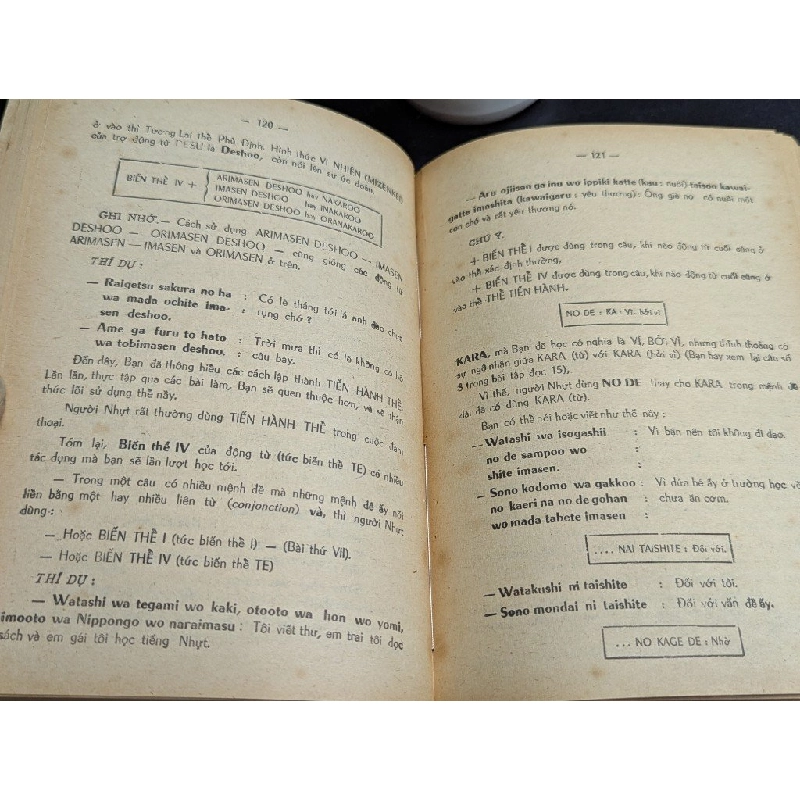 — 120 —
ở vào thì Tương Lai thể Phủ Định. Hình thức VỊ NHIÊN (MIZENKEI)
của trợ động từ DESU là Deshoo, còn nói lên sự ức đoán.
BIẾN THỂ IV +
ARIMASEN DESHOO hay NAKAROO
IMASEN DESHOO hay INAKAROO
ORIMASEN DESHOO hay ORANAKAROO
GHI NHỚ. — Cách sử dụng ARIMASEN DESHOO — IMASEN
DESHOO — ORIMASEN DESHOO — cũng giống các động từ
ARIMASEN — IMASEN và ORIMASEN ở trên.
THÍ DỤ :
— Raigetsu sakura no ha : Có lẽ tháng tới lá anh đào chưa
wa mada ochite ima- : rụng chớ ?
sen deshoo,
— Ame ga furu to hato : Trời mưa thì có lẽ không có bồ
wa tobimasen deshou. : câu bay.
Đến đây, Bạn đã thông hiểu các cách lập thành TIẾN HÀNH THỂ
Lần lần, thực tập qua các bài làm, Bạn sẽ quen thuộc hơn, và sẽ nhận
thức lối sử dụng thể nầy.
Người Nhựt rất thường dùng TIẾN HÀNH THỂ trong cuộc đàm
thoại.
Tóm lại, Biến thể IV của động từ (tức biến thể TE) có nhiều
tác dụng mà bạn sẽ lần lượt học tới.
— Trong một câu có nhiều mệnh đề mà những mệnh đề ấy nối
liền bằng một hay nhiều liên từ (conjonction) và, thì người Nhựt
dùng :
— Hoặc BIẾN THỂ I (tức biến thể i) — (Bài thứ VII).
— Hoặc BIẾN THỂ IV (tức biến thể TE)
THÍ DỤ :
— Watashi wa tegami wo kaki, otooto wa hon wo yomi,
imooto wa Nippongo wo naraimasu : Tôi viết thư, em trai tôi đọc
sách và em gái tôi học tiếng Nhựt.
— 121 —
— Aru ojiisan ga inu wo ippiki katte (kau : nuôi) taison kawai-
gatte imashita (kawaigaru : yêu thương) : Ông già nọ có nuôi một
con chó và rất yêu thương nó.
CHÚ Ý.
+ BIẾN THỂ I được dùng trong câu, khi nào động từ cuối cùng ở
vào thể xác định thường,
+ BIẾN THỂ IV được dùng trong câu, khi nào động từ cuối cùng ở
vào thể THỂ TIẾN HÀNH.
NO DE = KA : Vì, bởi vì
KARA, mà Bạn đã học có nghĩa là VÌ, BỞI VÌ, nhưng đính thoảng có
sự ngộ nhận giữa KARA (từ) với KARA (bởi vì) (Bạn hay xem lại câu số
9 trong bài tập đọc 15),
Vì thế, người Nhựt dùng NO DE thay cho KARA trong mệnh đề
nào đã có dùng KARA (từ).
Bạn có thể nói hoặc viết như thế này :
— Watashi wa isogashii : Vì bận nên tôi không đi dạo.
no de sampoo wo :
shite imasen. :
— Sono kodomo wa gakkoo : Vì đứa bé ấy ở trường học về
no kaeri na no de gohan : chưa ăn cơm.
wo mada tabete imasen :
.... NAI TAISHITE : Đối với.
— Watakushi ni taishite : Đối với tôi.
— Sono mondai ni taishite : Đối với vấn đề ấy.
... NO KAGE DE : Nhờ